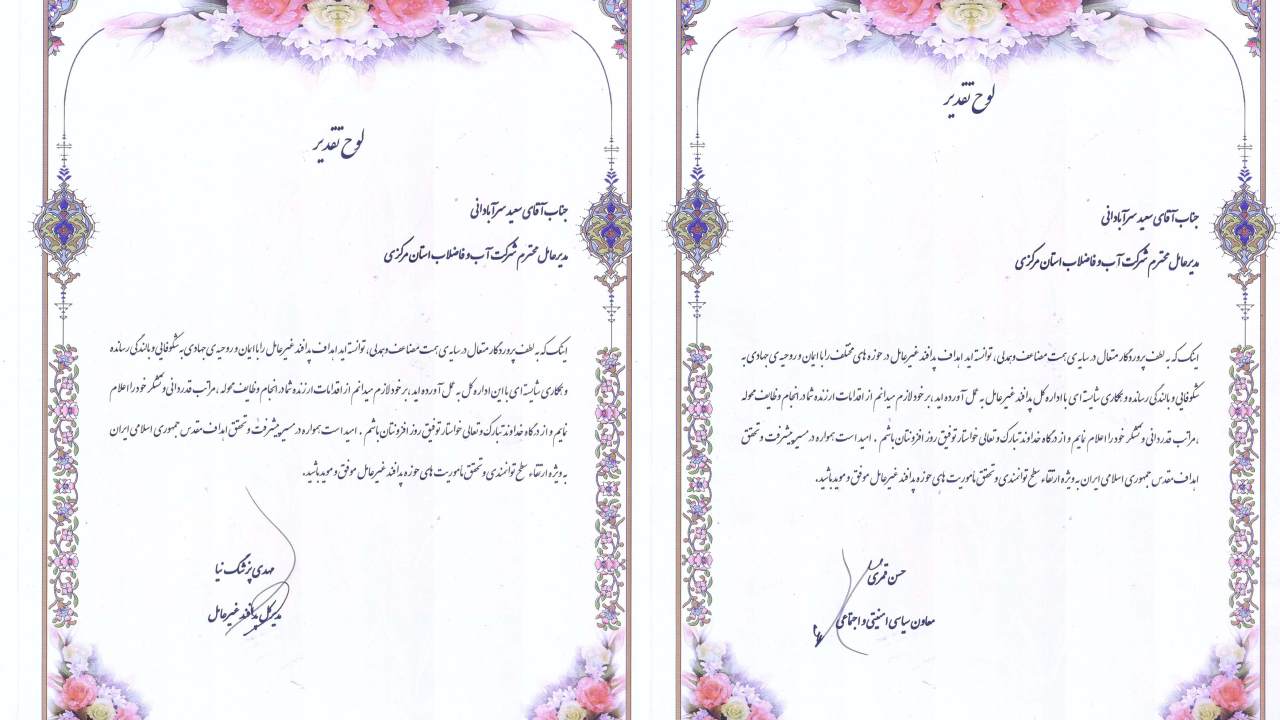 لوح تقدیر
جناب آقای سعید سرآبادانی
مدیرعامل محترم شرکت آب و فاضلاب استان مرکزی
اینک که به لطف پروردگار متعال در سایه ی همت مضاعف و همدلی، توانسته اید اهداف پدافند غیرعامل در حوزه های مختلف را با ایمان و روحیه ی جهادی به
شکوفایی و بالندگی رسانده و همکاری شایسته ای با اداره کل پدافند غیرعامل به عمل آورده اید، بر خود لازم میدانم از اقدامات ارزنده شما در انجام وظایف محوله
،مراتب قدردانی و تشکر خود را اعلام نمایم و از درگاه خداوند تبارک و تعالی خواستار توفیق روز افزونتان باشم . امید است همواره در مسیر پیشرفت و تحقق
اهداف مقدس جمهوری اسلامی ایران به ویژه ارتقاء سطح توانمندی و تحقق ماموریت های حوزه پدافند غیرعامل موفق و موید باشید.
حسن قمری
معاون سیاسی امنیتی و اجتماعی
لوح تقدیر
جناب آقای سعید سرآبادانی
مدیرعامل محترم شرکت آب و فاضلاب استان مرکزی
اینک که به لطف پروردگار متعال در سایه ی همت مضاعف و همدلی، توانسته اید اهداف پدافند غیرعامل را با ایمان و روحیه ی جهادی به شکوفایی و بالندگی رسانده
و همکاری شایسته ای با این اداره کل به عمل آورده اید، بر خود لازم میدانم از اقدامات ارزنده شما در انجام وظایف محوله ،مراتب قدردانی و تشکر خود را اعلام
نمایم و از درگاه خداوند تبارک و تعالی خواستار توفیق روز افزونتان باشم . امید است همواره در مسیر پیشرفت و تحقق اهداف مقدس جمهوری اسلامی ایران
به ویژه ارتقاء سطح توانمندی و تحقق ماموریت های حوزه پدافند غیرعامل موفق و موید باشید.
مهدی پزشک نیا
مدیرکل پدافند غیرعامل